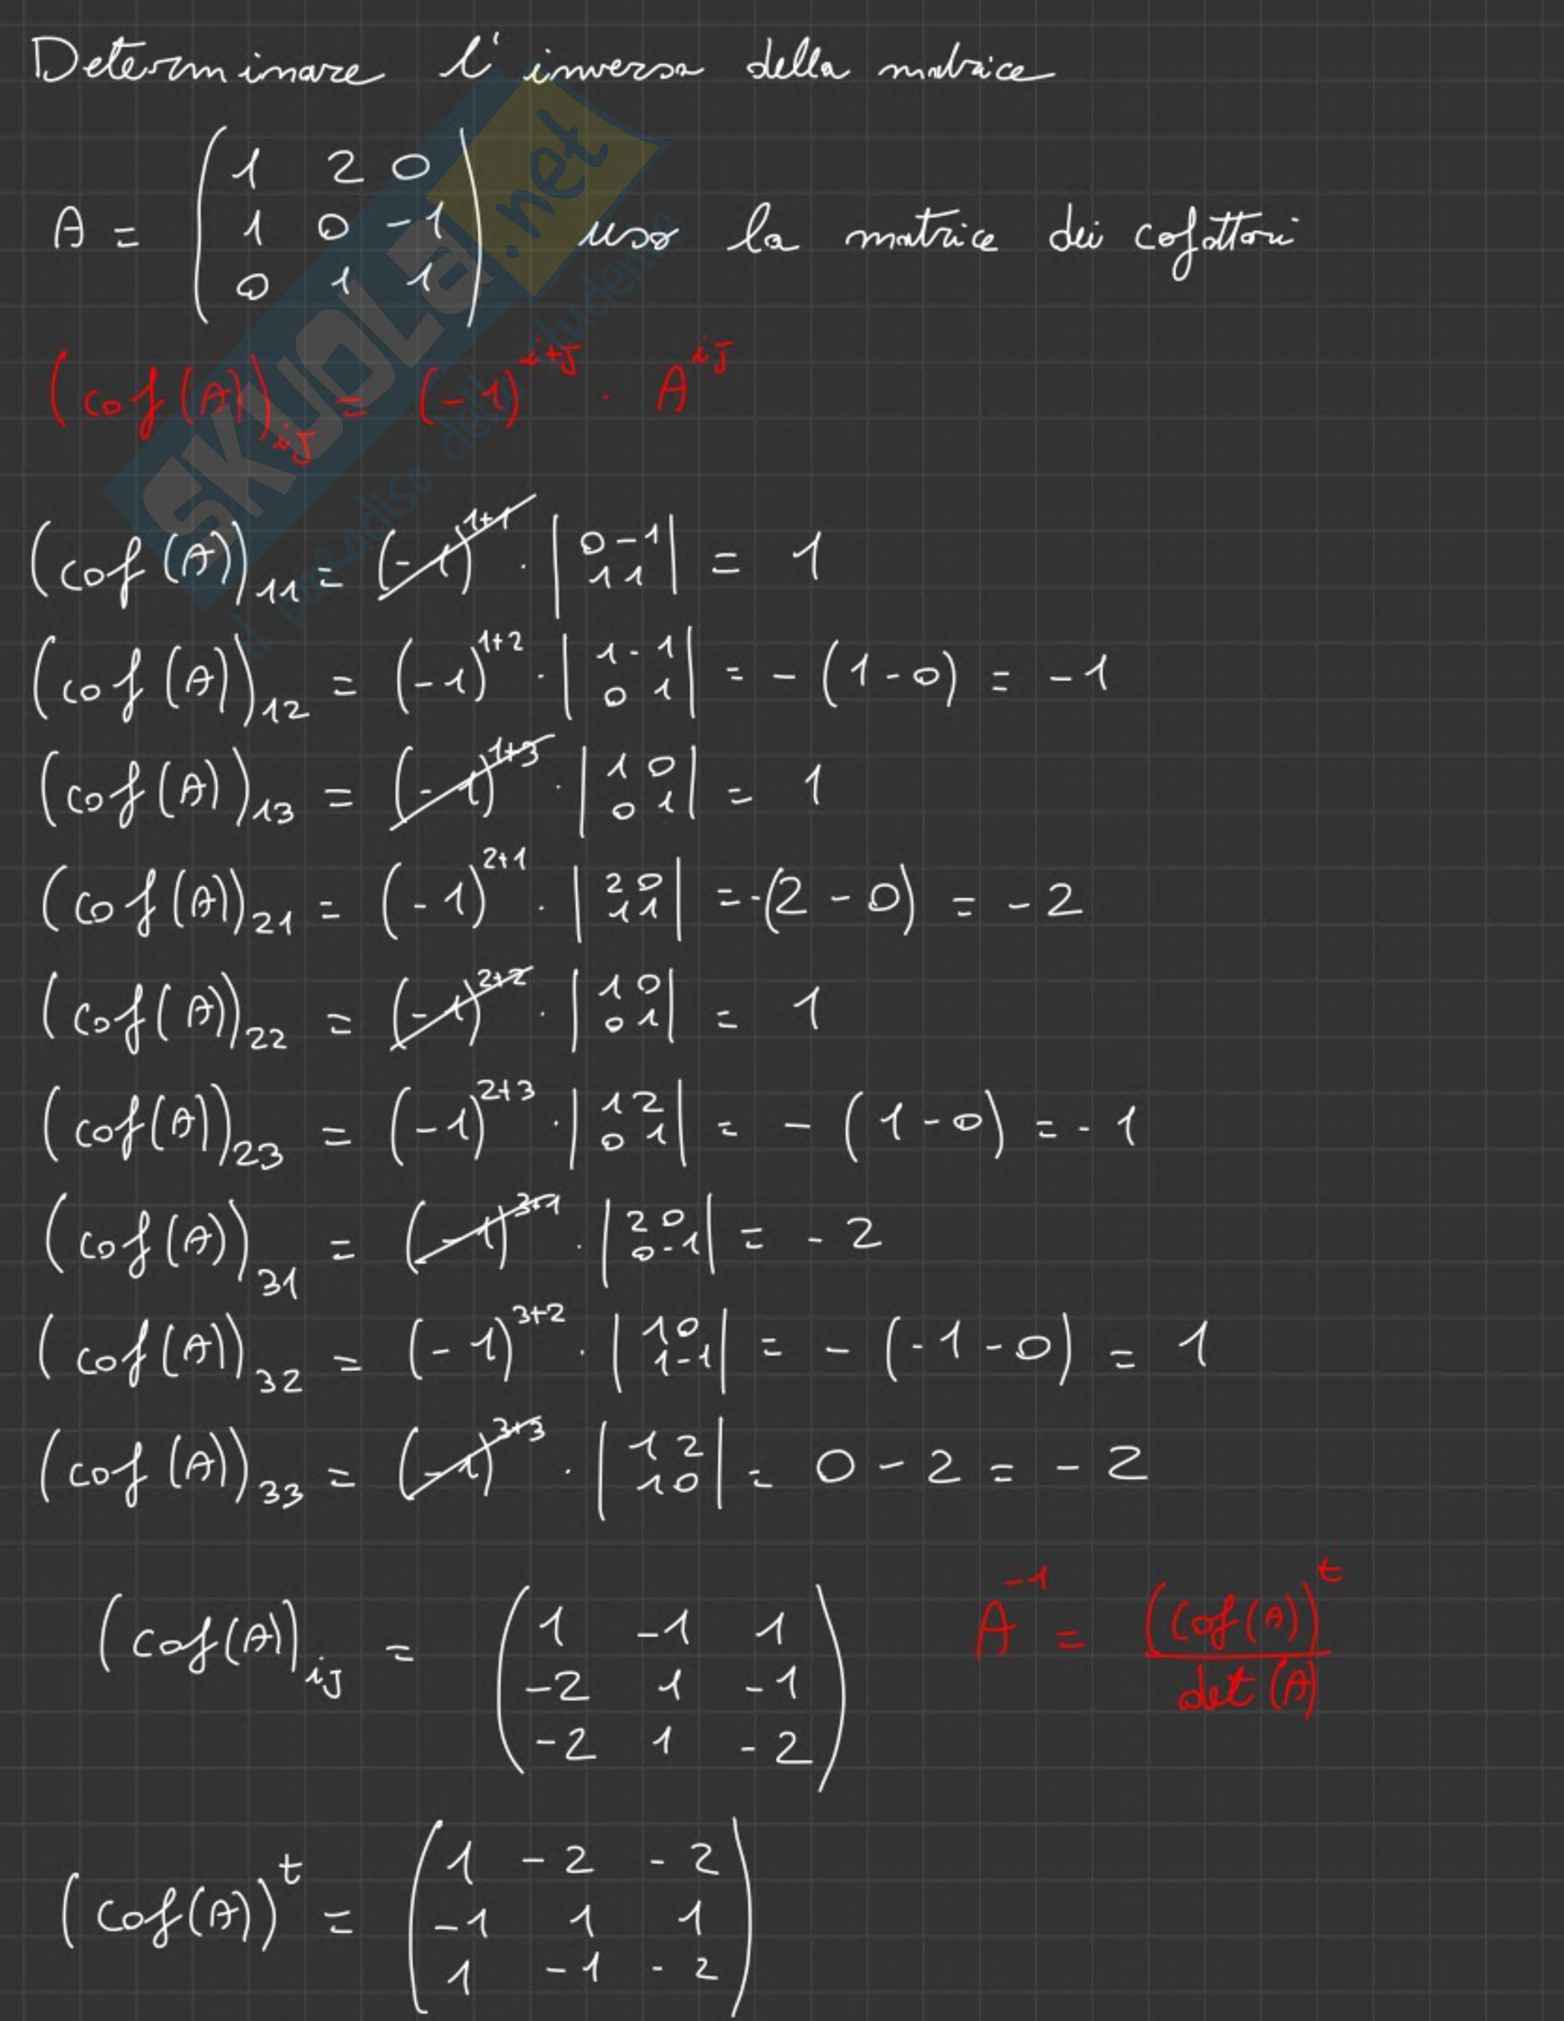 Determinare l' inversa della matrice
A = ( 1 2 0
1 0 -1
0 1 1 ) uso la matrice dei cofattori
(cof(A))ij = (-1)^i+j · A^ij
(cof(A))11 = (-1)^1+1 · | 0 -1
1 1 | = 1
(cof(A))12 = (-1)^1+2 · | 1 -1
0 1 | = - (1-0) = -1
(cof(A))13 = (-1)^1+3 · | 1 0
0 1 | = 1
(cof(A))21 = (-1)^2+1 · | 2 0
1 1 | = -(2-0) = -2
(cof(A))22 = (-1)^2+2 · | 1 0
0 1 | = 1
(cof(A))23 = (-1)^2+3 · | 1 2
0 1 | = - (1-0) = -1
(cof(A))31 = (-1)^3+1 · | 2 0
0 -1 | = -2
(cof(A))32 = (-1)^3+2 · | 1 0
1 -1 | = - (-1-0) = 1
(cof(A))33 = (-1)^3+3 · | 1 2
1 0 | = 0 - 2 = -2
(Cof(A))ij = ( 1 -1 1
-2 1 -1
-2 1 -2 )
A^-1 = (Cof(A))^t
det(A)
(Cof(A))^t = ( 1 -2 -2
-1 1 1
1 -1 -2 )
SKUOLa.net
il paradiso dello studente